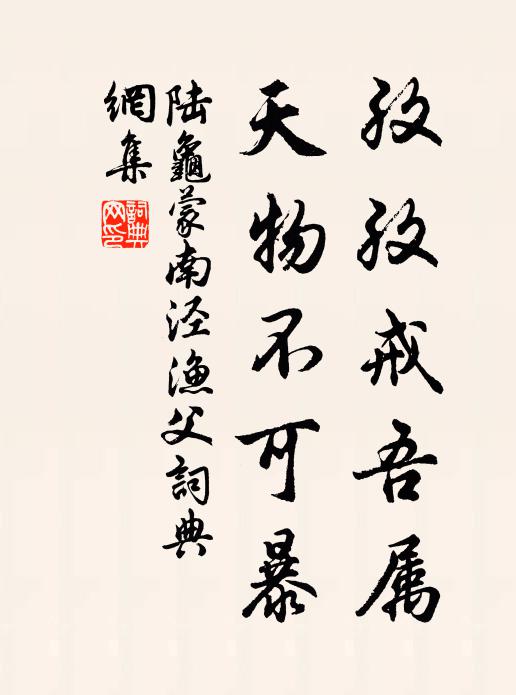 孜孜戒吾属
天物不可暴
陆龜蒙南泾漁父詞典
網集
詞典
网印